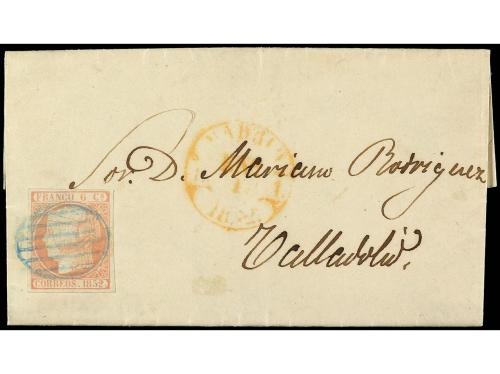 MADRID
1852
Sor. D. Mariano Rodriguez
Valladolid.
FRANCO 6 Cs
CORREOS. 1852